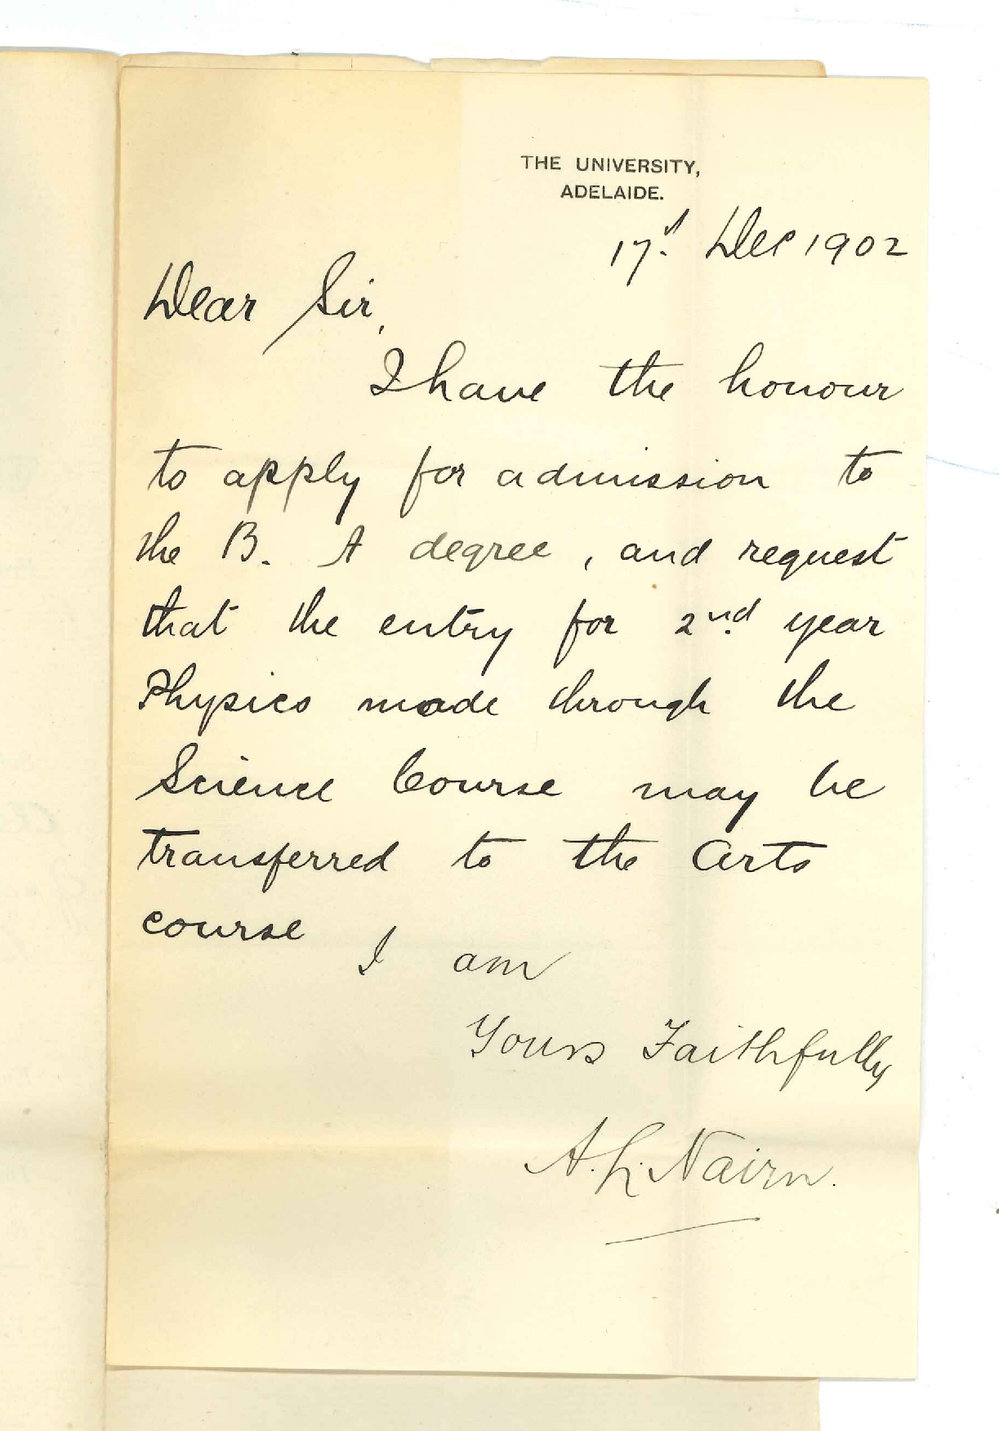 THE UNIVERSITY,
ADELAIDE.
17th. Dec 1902
Dear Sir,
I have the honour
to apply for admission to
the B. A degree, and request
that the entry for 2nd year
Physics made through the
Science Course may be
transferred to the Arts
course
I am
Yours Faithfully
A. L. Nairn.